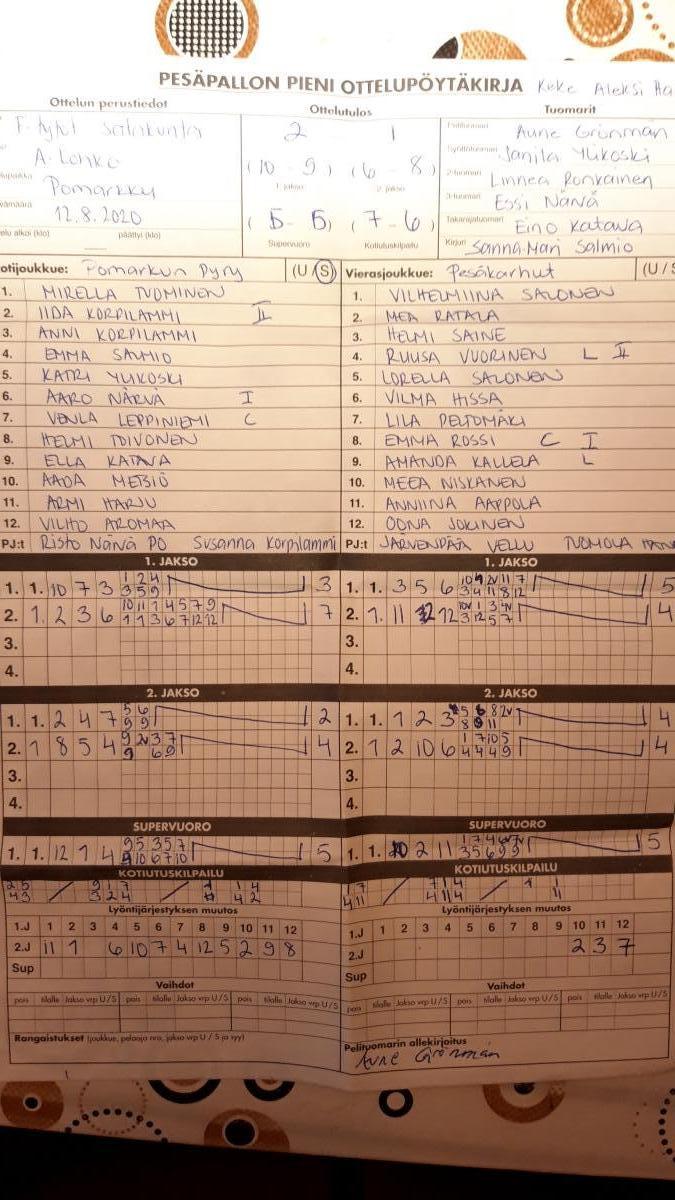 PESÄPALLON PIENI OTTELUPÖYTÄKIRJA Keke Aleksi Ha
Ottelun perustiedot
Ottelutulos
Tuomarit
F-tytöt Satakunta
A. Lohko
Pomarkku
12.8.2020
elu alkoi (klo) päättyi (klo)
2 1
(10 - 9) (6 - 8)
1. jakso 2. jakso
(5 - 5) (7 - 6)
Supervuoro Kotiutuskilpailu
Aune Grönman
Janita Ylikoski
2-tuomari Linnea Ronkainen
3-tuomari Essi Närvä
Takarajatuomari Eino Katava
Kirjuri Sanna-Mari Salmio
otijoukkue: Pomarkun Pyry (U / S)
1. MIRELLA TUOMINEN
2. IIDA KORPILAMMI II
3. ANNI KORPILAMMI
4. EMMA SALMIO
5. KATRI YLIKOSKI
6. AARO NÄRVÄ I
7. VENLA LEPPINIEMI C
8. HELMI TOIVONEN
9. ELLA KATAVA
10. AADA METSIÖ
11. ARMI HARJU
12. VILHO AROMAA
PJ:t Risto Närvä PO Susanna Korpilammi
Vierasjoukkue: Pesäkarhut (U / S
1. VILHELMIINA SALONEN
2. MEA RATALA
3. HELMI SAINE
4. RUUSA VUORINEN L II
5. LORELLA SALONEN
6. VILMA HISSA
7. LILA PELTOMÄKI
8. EMMA ROSSI C I
9. AMANDA KALLELA L
10. MEEA NISKANEN
11. ANNIINA AAPPOLA
12. OONA JOKINEN
PJ:t JÄRVENPÄÄ VELLU TUOMOLA
1. JAKSO
1. 1. 10 7 3 1 2 4 3
3 5 9
2. 1. 2 3 6 10 11 1 4 5 7 9 7
1 1 3 6 7 12 12
3.
4.
1. JAKSO
1. 1. 3 5 6 5
2. 1. 11 12 4
3.
4.
2. JAKSO
1. 1. 2 4 7 5 6 2
9 9
2. 1 8 5 4 9 2v 3 7 4
3.
4.
2. JAKSO
1. 1. 1 2 3 4
2. 1 2 10 6 1 7 10 5 4
4 4 4 9
3.
4.
SUPERVUORO
1. 1. 12 1 4 9 5 3 5 7 5
9 10 6 7 10
SUPERVUORO
1. 1. 2 11 5
KOTIUTUSKILPAILU
KOTIUTUSKILPAILU
Lyöntijärjestyksen muutos
1.J 1 2 3 4 5 6 7 8 9 10 11 12
2.J 11 1 6 10 7 4 12 5 2 9 8
Sup
Lyöntijärjestyksen muutos
1.J 1 2 3 4 5 6 7 8 9 10 11 12
2.J 2 3 7
Sup
Vaihdot
pois tilalle Jakso vrp U/S pois tilalle Jakso vrp U/S pois tilalle Jakso vrp U/S
Vaihdot
pois tilalle Jakso vrp U/S pois tilalle Jakso vrp U/S pois tilalle Jakso vrp U/S
Rangaistukset (joukkue, pelaaja nro, jakso vrp U / S ja syy)
Pelituomarin allekirjoitus
Aune Grönman